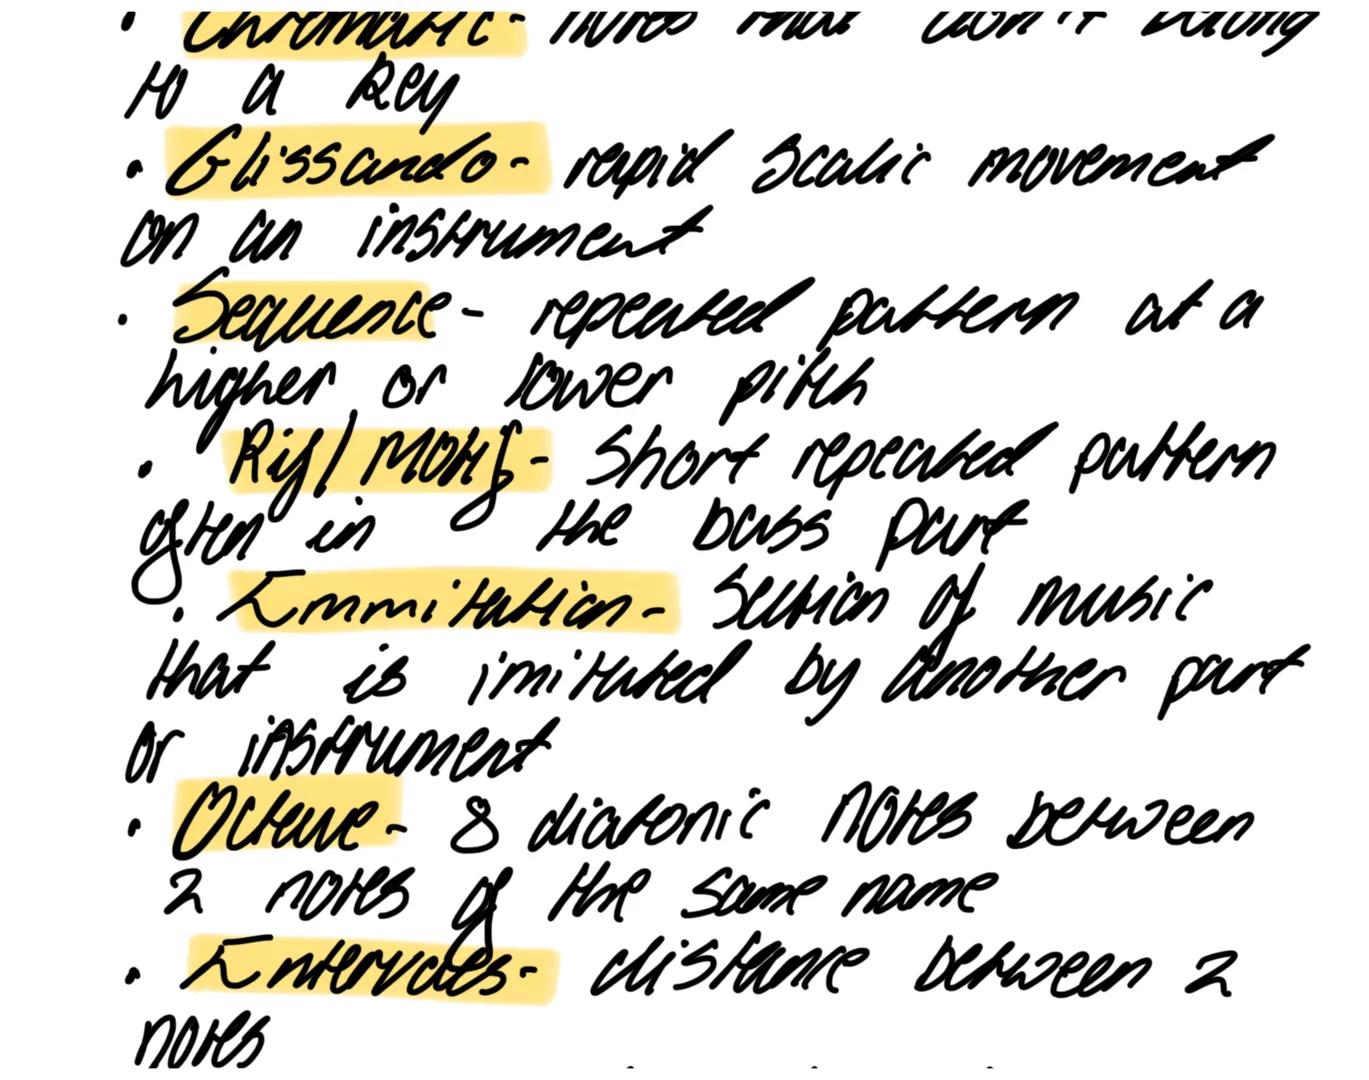 • Chromatic- notes that don't belong
to a key
• Glissando- rapid scalic movement
on an instrument
• Sequence- repeated pattern at a
higher or lower pitch
• Rif/Motif- Short repeated pattern
often in the bass part
• Immitation- Section of music
that is imitated by another part
or instrument
• Octave- 8 diatonic notes between
2 notes of the same name
• Intervals- distance between 2
notes